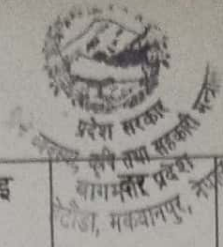 प्रदेश सरकार
कृषि तथा सहकारी मन्त्रा
बागमती प्रदेश
हेटौंडा, मकवानपुर, नेपाल
इ